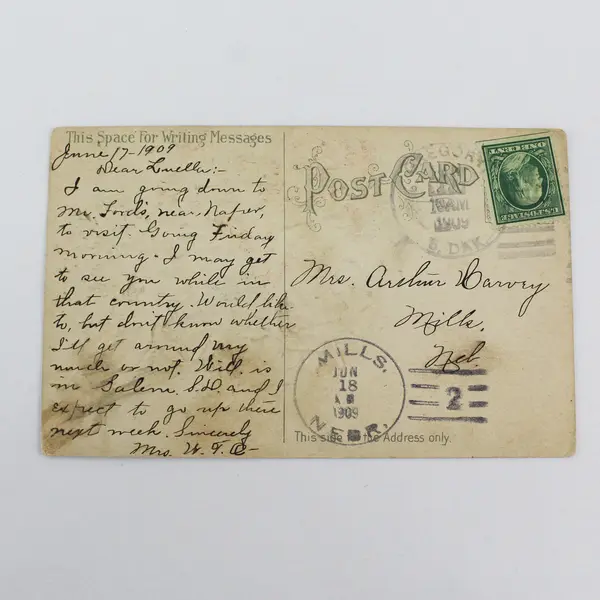 This Space For Writing Messages
June 17-1909
Dear Luella:-
I am going down to
Mr. Ford's, near Naper,
to visit. Going Friday
morning. I may get
to see you while in
that country. Would like
to, but don't know whether
I'll get around very
much or not. Will is
in Salem S.D. and I
expect to go up there
next week. Sincerely
Mrs. W. F. C-
POST CARD
1909
S. DAK.
ONE CENT
U.S. POSTAGE
Mrs. Arthur Harvey
Mills,
Neb
MILLS,
JUN
18
1909
NEBR.
2
This side the Address only.